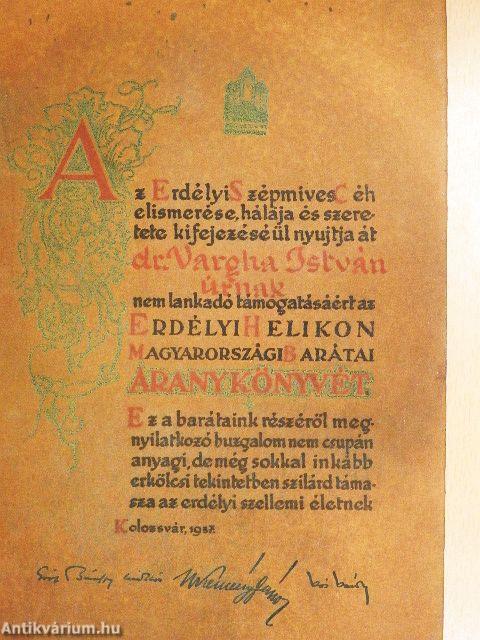 Az Erdélyi Szépmives Céh
elismerése, hálája és szere-
tete kifejezéséül nyujtja át
dr. Vargha István
úrnak
nem lankadó támogatásáért az
ERDÉLYI HELIKON
MAGYARORSZÁGI BARÁTAI
ARANYKÖNYVÉT.
Ez a barátaink részéről meg-
nyilatkozó buzgalom nem csupán
anyagi, de még sokkal inkább
erkölcsi tekintetben szilárd táma-
sza az erdélyi szellemi életnek
Kolozsvár, 1937.
Antikvárium.hu